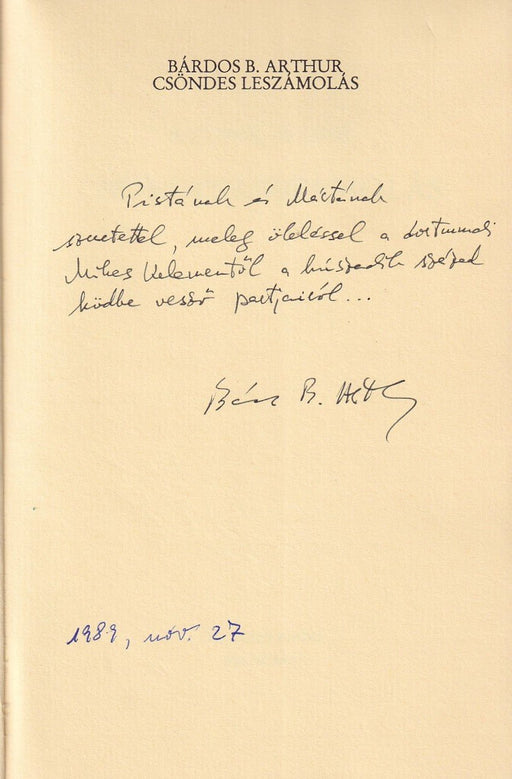 BÁRDOS B. ARTHUR
CSÖNDES LESZÁMOLÁS
Pistának és Mártának
szeretettel, meleg öleléssel a dortmundi
Mikes Kelementől a huszadik század
ködbe vesző partjairól...
B. 
1989, nov. 27